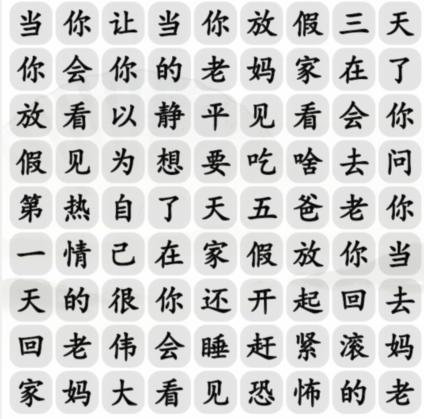 当你让当你放假三天
你会你的老妈家在了
放看以静平见看会你
假见为想要吃啥去问
第热自了天五爸老你
一情己在家假放你当
天的很你还开起回去
回老伟会睡赶紧滚妈
家妈大看见恐怖的老